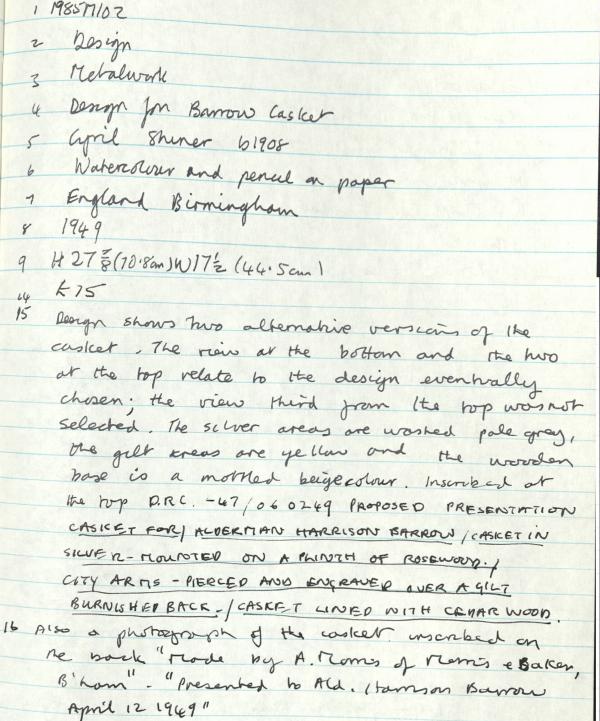 1 1985M102
2 Design
3 Metalwork
4 Design for Barrow Casket
5 Cyril Shiner b1908
6 Watercolour and pencil on paper
7 England Birmingham
8 1949
9 H 27 7/8 (70.8cm) W 17 1/2 (44.5cm)
14 £75
15 Design shows two alternative versions of the
casket. The view at the bottom and the two
at the top relate to the design eventually
chosen; the view third from the top was not
selected. The silver areas are washed pale grey,
the gilt areas are yellow and the wooden
base is a mottled beige colour. Inscribed at
the top D.R.C. -47/060249 PROPOSED PRESENTATION
CASKET FOR/ ALDERMAN HARRISON BARROW/CASKET IN
SILVER-MOUNTED ON A PLINTH OF ROSEWOOD./
CITY ARMS - PIERCED AND ENGRAVED OVER A GILT
BURNISHED BACK-/CASKET LINED WITH CEDAR WOOD.
16 Also a photograph of the casket inscribed on
the back "Made by A. Morris of Morris & Baker,
B'ham" - "Presented to Ald. Harrison Barrow
April 12 1949"